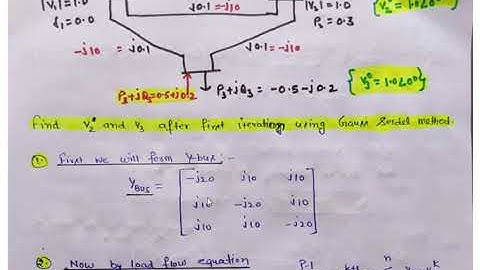 |V₁|=1.0 j0.1=-j10 |V₂|=1.0 {V₂⁰=1.0∠0⁰}
δ₁=0.0 P₂=0.3
-j10 = j0.1 j0.1=-j10
P₃+jQ₃=0.5+j0.2 P₃+jQ₃ = -0.5-j0.2 {V₃⁰=1.0∠0⁰}
find V₂ and V₃ after first iteration using Gauss Seidel method.
1. first we will form Y-bus:-
Y_BUS = [ -j20 j10 j10
j10 -j20 j10
j10 j10 -j20 ]
2. Now by load flow equation